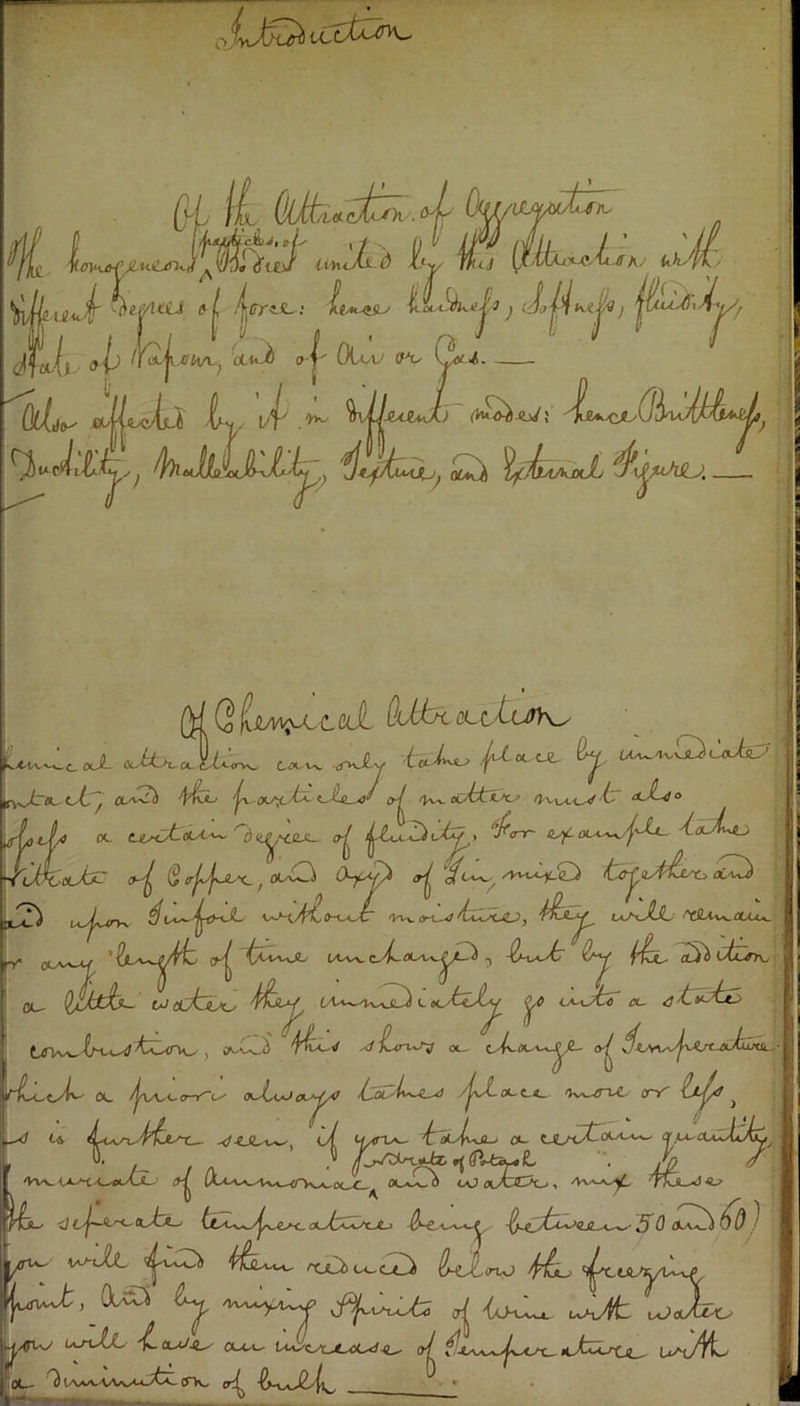 Introduction
Of the Attraction of Aggregation
The homogeneous particles of Bodies united by this Attraction with
different degrees of force: hence hardness, softness, fluidity,
State of Vapour, and of Air or Gas. ——
Also affected by it in different modes: hence Brittleness,
Ductility, Malleability, Texture, and External Figure. ——
Of Chemical Attraction
Chemical attraction can only take place by immediate
contact, and the particles of matter must also
possess a certain degree of fluidity, for example take
Nitrate of Copper, and Oxyd of Tin, mixed together and
upon Tinfoil without moisture, they will remain
for any length of time unchanged, but by the addition
of a little water they immediately go into a state
of combustion, and this shows a change of Temperature
which a priori always takes place more or less,
as is further seen, if you take a certain quantity
of muriate of Ammonia, Nitrate of Potash and water, mix these
the separate temperature being between 50 and 60)
you will find them reduced below the freezing
point, And by mixing Spirits of Wine with water
you will have an increase of Temperature with
a diminution of bulk ——